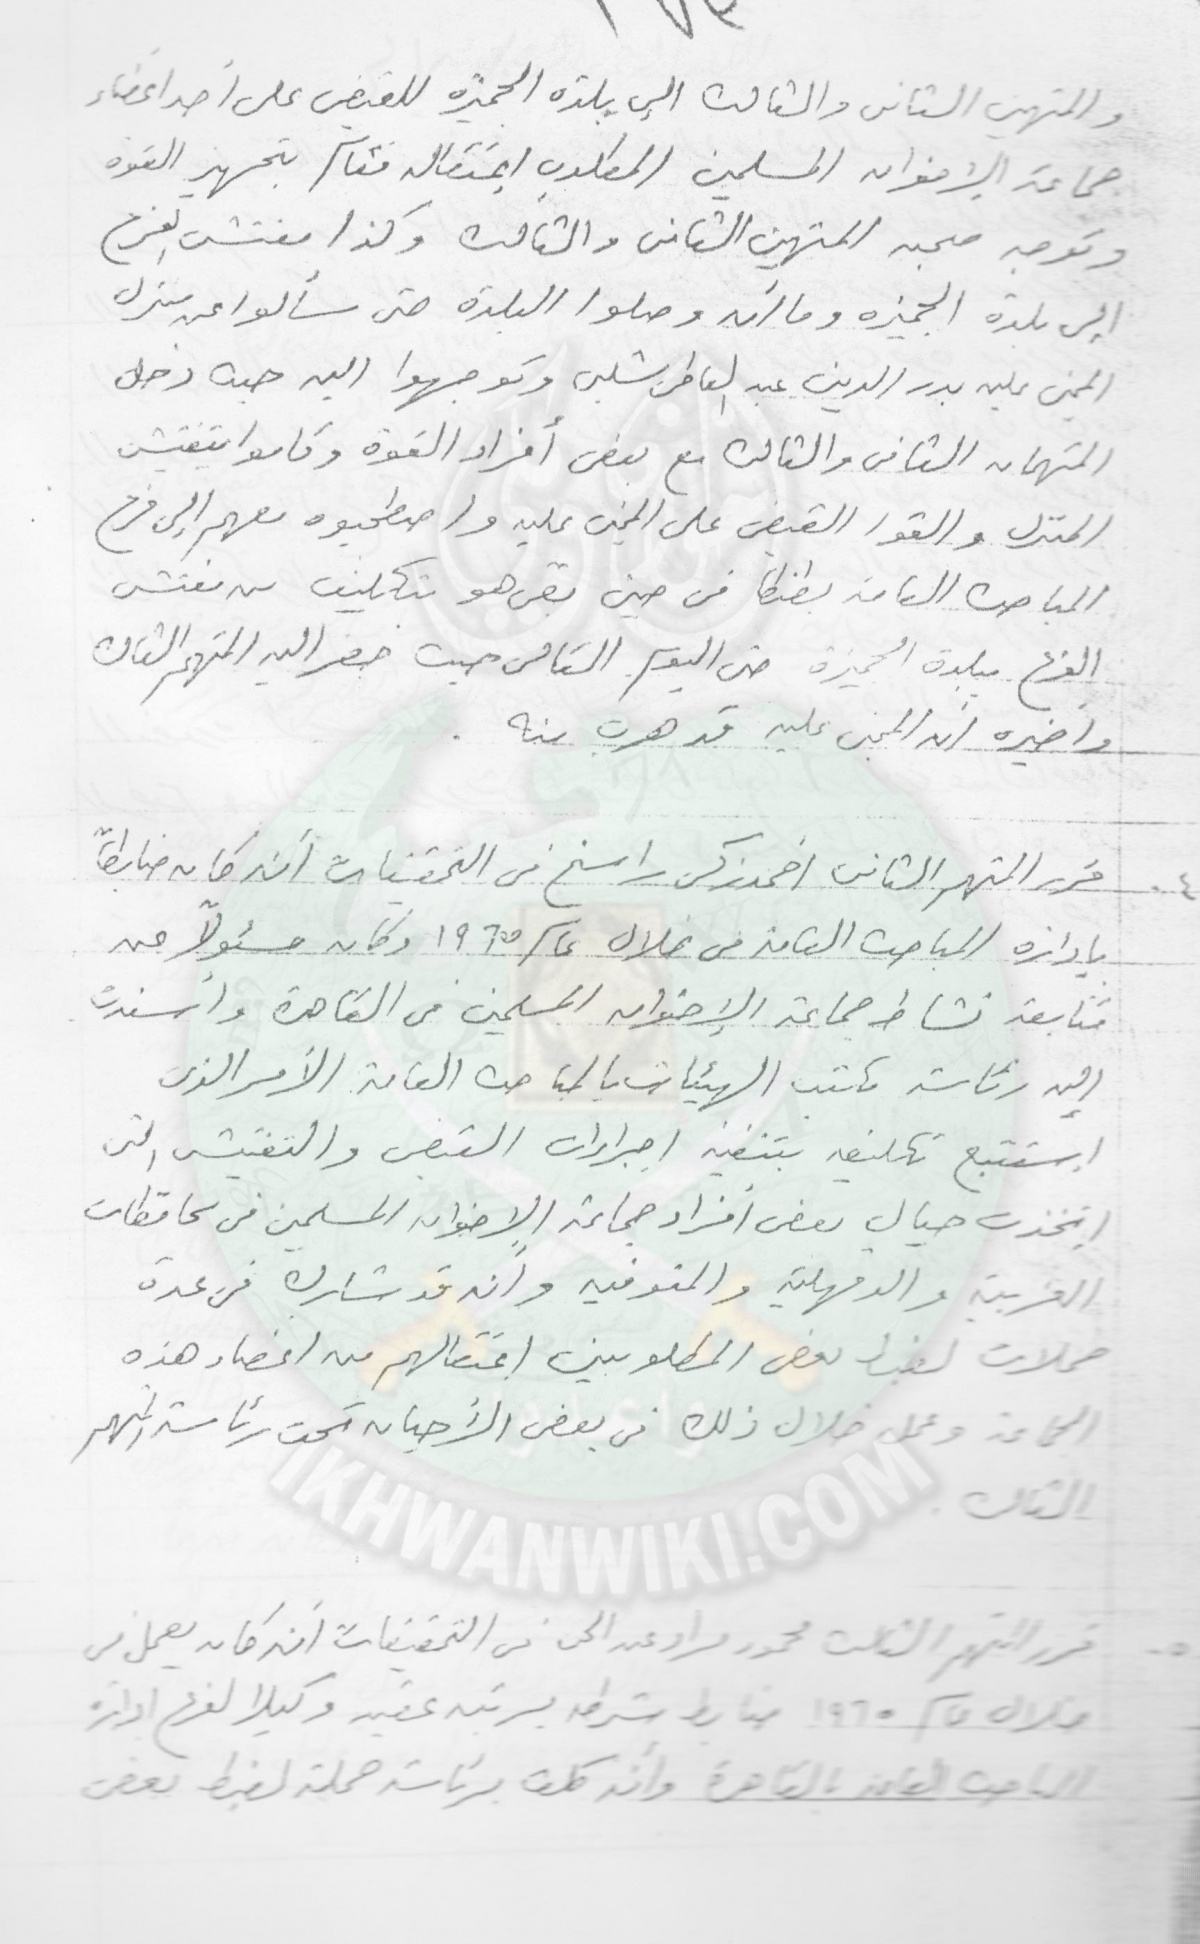 والمتهمين الثانى والثالث إلى بلدة الجميزة للقبض على أحد أعضاء
جماعة الإخوان المسلمين المطلوب اعتقاله فقام بتجهيز القوة
وتوجه صحبه المتهمين الثانى والثالث وكذا مفتش الفرع
إلى بلدة الجميزة وما أن وصلوا البلدة حتى سألوا عن منزل
المجنى عليه بدر الدين عبد العاطى شلبى وتوجهوا إليه حيث دخل
المتهمان الثانى والثالث مع بعض أفراد القوة وقاموا بتفتيش
المنزل وألقوا القبض على المجنى عليه واصطحبوه معهم إلى فرع
المباحث العامة بطنطا فى حين بقى هو بتكليف من مفتش
الفرع ببلدة الجميزة حتى اليوم التالى حيث حضر إليه المتهم الثالث
وأخبره أن المجنى عليه قد هرب منه .
٤ - قرر المتهم الثانى أحمد زكى راسخ فى التحقيقات أنه كان ضابطاً
بإدارة المباحث العامة فى خلال عام ١٩٦٥ وكان مسئولاً عن
متابعة نشاط جماعة الإخوان المسلمين فى القاهرة وأسندت
إليه رئاسة مكتب الهيئات بالمباحث العامة الأمر الذى
استتبع تكليفه بتنفيذ إجراءات القبض والتفتيش التى
اتخذت حيال بعض أفراد جماعة الإخوان المسلمين فى محافظات
الغربية والدقهلية والمنوفية وأنه قد شارك فى عدة
حملات لضبط بعض المطلوبين اعتقالهم من أعضاء هذه
الجماعة وعمل خلال ذلك فى بعض الأحيان تحت رئاسة المتهم
الثالث .
IKHWANWIKI.COM
٥ - قرر المتهم الثالث محمود مراد عبد الحى فى التحقيقات أنه كان يعمل فى
خلال عام ١٩٦٥ ضابط شرطة برتبة عقيد وكيلا لفرع إدارة
المباحث العامة بالقاهرة وأنه كلف برئاسة حملة لضبط بعض